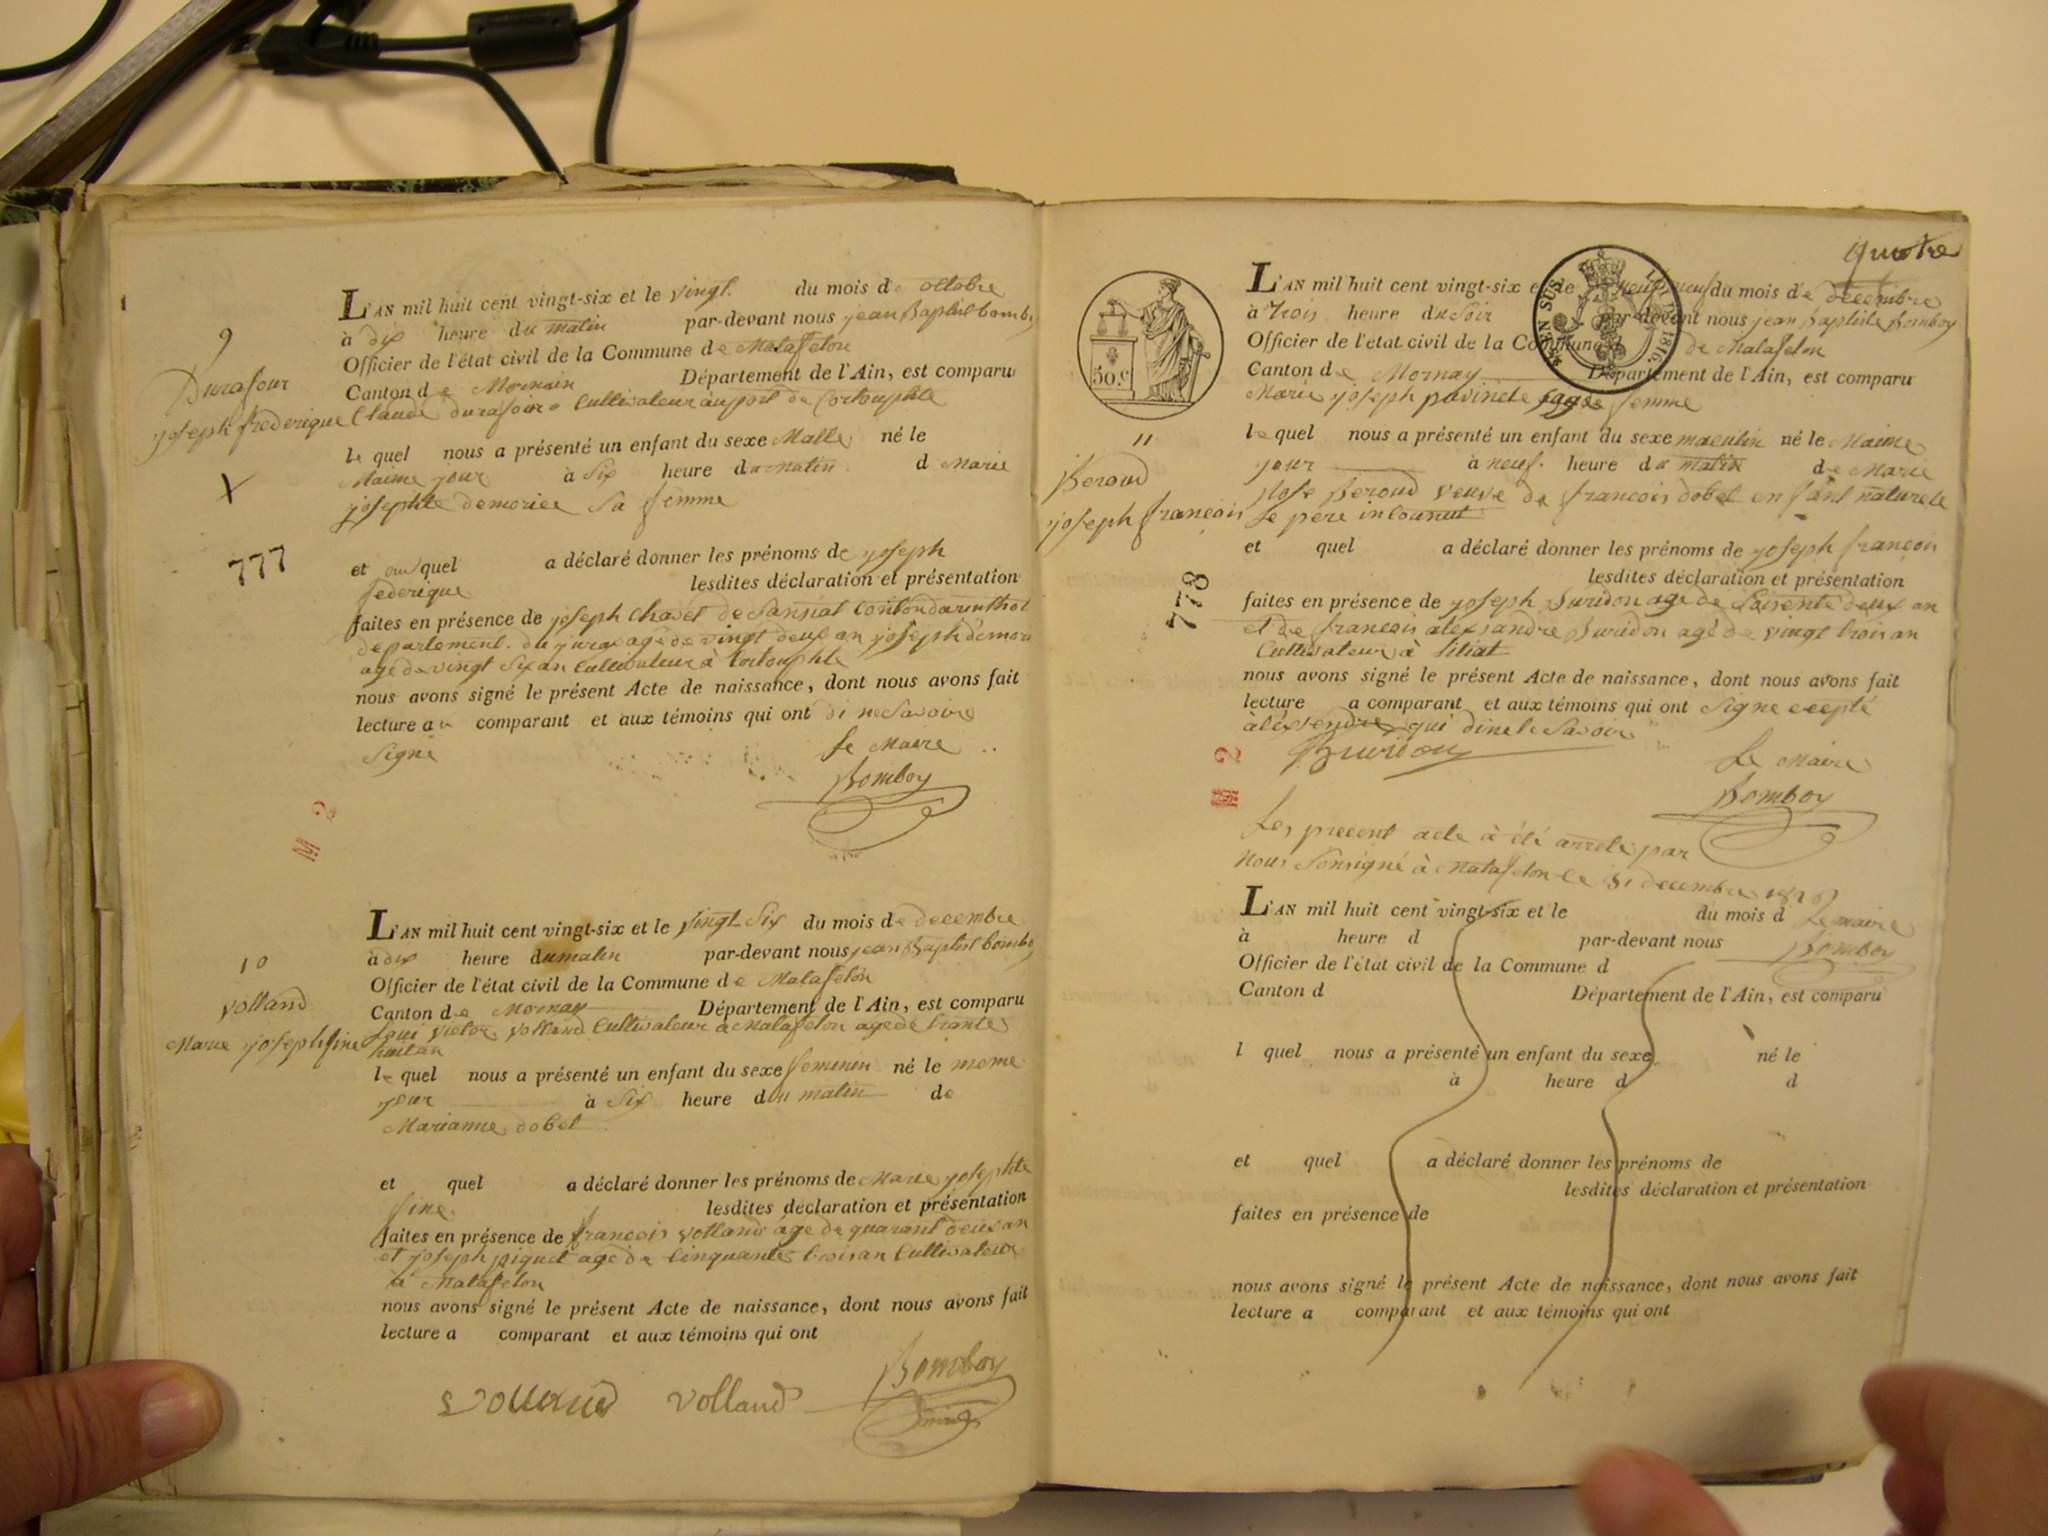 9
Durafour
joseph frederique
X
777
L'AN mil huit cent vingt-six et le vingt du mois de octobre
à dix heure du matin par-devant nous jean Baptist bomboy
Officier de l'état civil de la Commune de Matafelon
Canton de Mornain Département de l'Ain, est comparu
Claude durafour Cultivateur au port de
le quel nous a présenté un enfant du sexe Malle né le
Maime jour à Six heure du matin d Marie
josephte demoriec Sa femme
et au quel a déclaré donner les prénoms de joseph
federique lesdites déclaration et présentation
faites en présence de joseph Chavet de
departement du jura age de vingt deux an joseph
age de vingt Six an Cultivateur à
nous avons signé le présent Acte de naissance, dont nous avons fait
lecture au comparant et aux témoins qui ont di ne Savoire
Signé Le Maire
Bomboy
M 2
10
Volland
Marie josephfine
L'AN mil huit cent vingt-six et le vingt Six du mois de decembre
à dix heure du matin par-devant nous jean Baptist bomboy
Officier de l'état civil de la Commune de Matafelon
Canton de Mornay Département de l'Ain, est comparu
Loui victor Volland Cultivateur a Matafelon age de trante
huit an
le quel nous a présenté un enfant du sexe feminin né le meme
jour à Six heure du matin de
Marianne dobet
et quel a déclaré donner les prénoms de Marie josephte
fine lesdites déclaration et présentation
faites en présence de francois volland age de quarant deux an
et joseph piquet age de Cinquante trois an Cultivateur
à Matafelon
nous avons signé le présent Acte de naissance, dont nous avons fait
lecture a comparant et aux témoins qui ont
Bomboy
Volland Volland
quatre
50.c
EN SUS
LOI 1816.
11
Beroud
joseph françois
778
L'AN mil huit cent vingt-six et le neuf du mois de decembre
à Trois heure du Soir par-devant nous jean baptiste Bomboy
Officier de l'état civil de la Commune de Matafelon
Canton de Mornay Département de l'Ain, est comparu
Marie joseph sage femme
le quel nous a présenté un enfant du sexe masculin né le Maime
jour à neuf heure du matin de Marie
Rose Beroud veuve de francois dobet enfant naturele
le pere inconnut
et quel a déclaré donner les prénoms de joseph françois
lesdites déclaration et présentation
faites en présence de joseph Buridon age de Soisente deux an
et de francois alexsandre Buridon agé de vingt trois an
Cultivateur à
nous avons signé le présent Acte de naissance, dont nous avons fait
lecture a comparant et aux témoins qui ont Signe ecepté
alexsendre qui di ne le Savoir
Buridon Le Maire
Bomboy
M 2
Les precent acte à été arrete par
nous Sousigné à Matafelon le 31 decembre 1826
L'AN mil huit cent vingt-six et le du mois d Le maire
à heure d par-devant nous Bomboy
Officier de l'état civil de la Commune d
Canton d Département de l'Ain, est comparu
l quel nous a présenté un enfant du sexe né le
à heure d d
et quel a déclaré donner les prénoms de
lesdites déclaration et présentation
faites en présence de
nous avons signé le présent Acte de naissance, dont nous avons fait
lecture a comparant et aux témoins qui ont